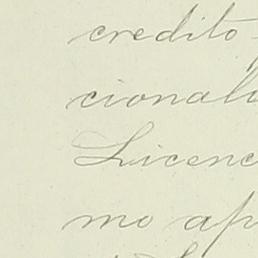 credito
cionali
Licenc
mo ap